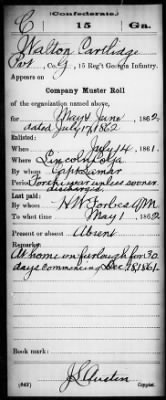 (Confederate.)
C 15 Ga.
Walton Cartledge
Pvt, Co. G, 15 Reg't Georgia Infantry.
Appears on
Company Muster Roll
of the organization named above,
for May & June, 1862.
dated July 17, 1862
Enlisted:
When July 14, 1861.
Where Lincoln Co Ga
By whom Capt Lamar
Period For the war unless sooner
discharged
Last paid:
By whom H W Forbes AQM
To what time May 1, 1862
Present or absent Absent
Remarks:
At home on furlough for 30
days commencing Dec 18, 1861.
Book mark:
(642) J S Austin
Copyist.